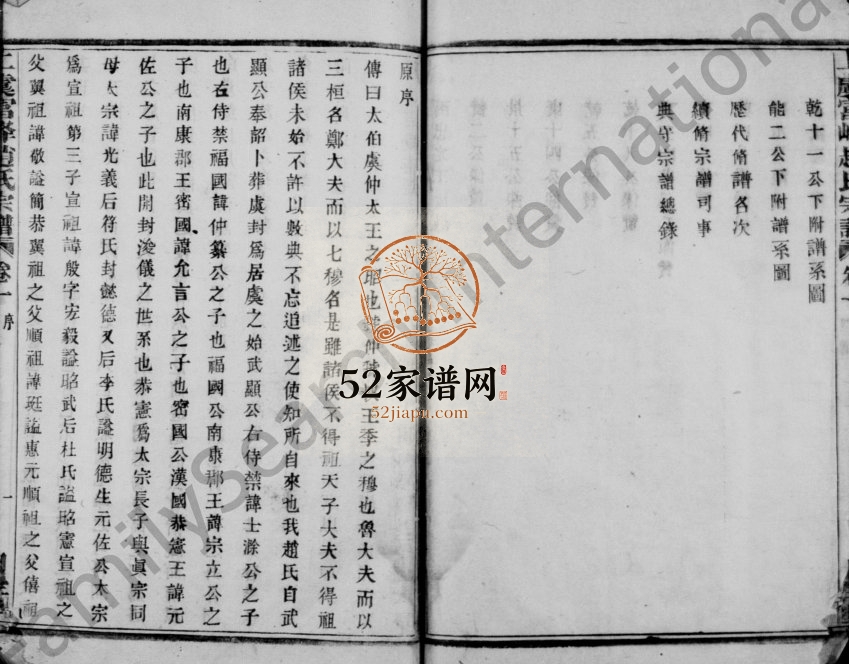 乾十一公下附譜系圖
能二公下附譜系圖
歷代脩譜名次
續脩宗譜司事
典守宗譜總錄
原序
傳曰太伯虞仲太王之昭也虢仲虢叔王季之穆也魯大夫而以
三桓名鄭大夫而以七穆名是雖諸侯不得祖天子大夫不得祖
諸侯未始不許以數典不忘追述之使知所自來也我趙氏自武
顯公奉韶卜葬虞封爲居虞之始武顯公右侍禁諱士滁公之子
也右侍禁福國諱仲纂公之子也福國公南康郡王諱宗立公之
子也南康郡王密國諱允言公之子也密國公漢國恭憲王諱元
佐公之子也此開封浚儀之世系也恭憲爲太宗長子與眞宗同
母太宗諱光義后符氏封懿德又后李氏諡明德生元佐公太宗
爲宣祖第三子宣祖諱殷字宏毅諡昭武后杜氏諡昭憲宣祖之
父翼祖諱敬諡簡恭翼祖之父順祖諱珽諡惠元順祖之父僖祖
上虞富峰趙氏宗譜 卷一 序 一
52家谱网
52jiapu.com
FamilySearch International